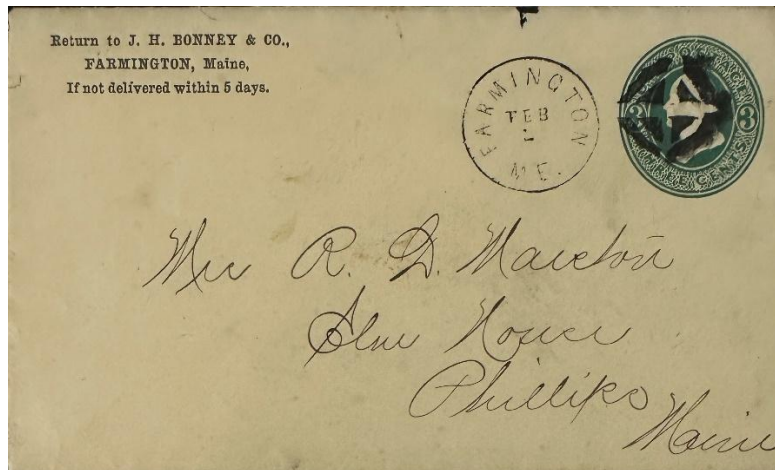 Return to J. H. BONNEY & CO.,
FARMINGTON, Maine,
If not delivered within 5 days.
FARMINGTON
FEB
M E.
3 3
CENTS
R. D. Marston
House
Phillips
Maine